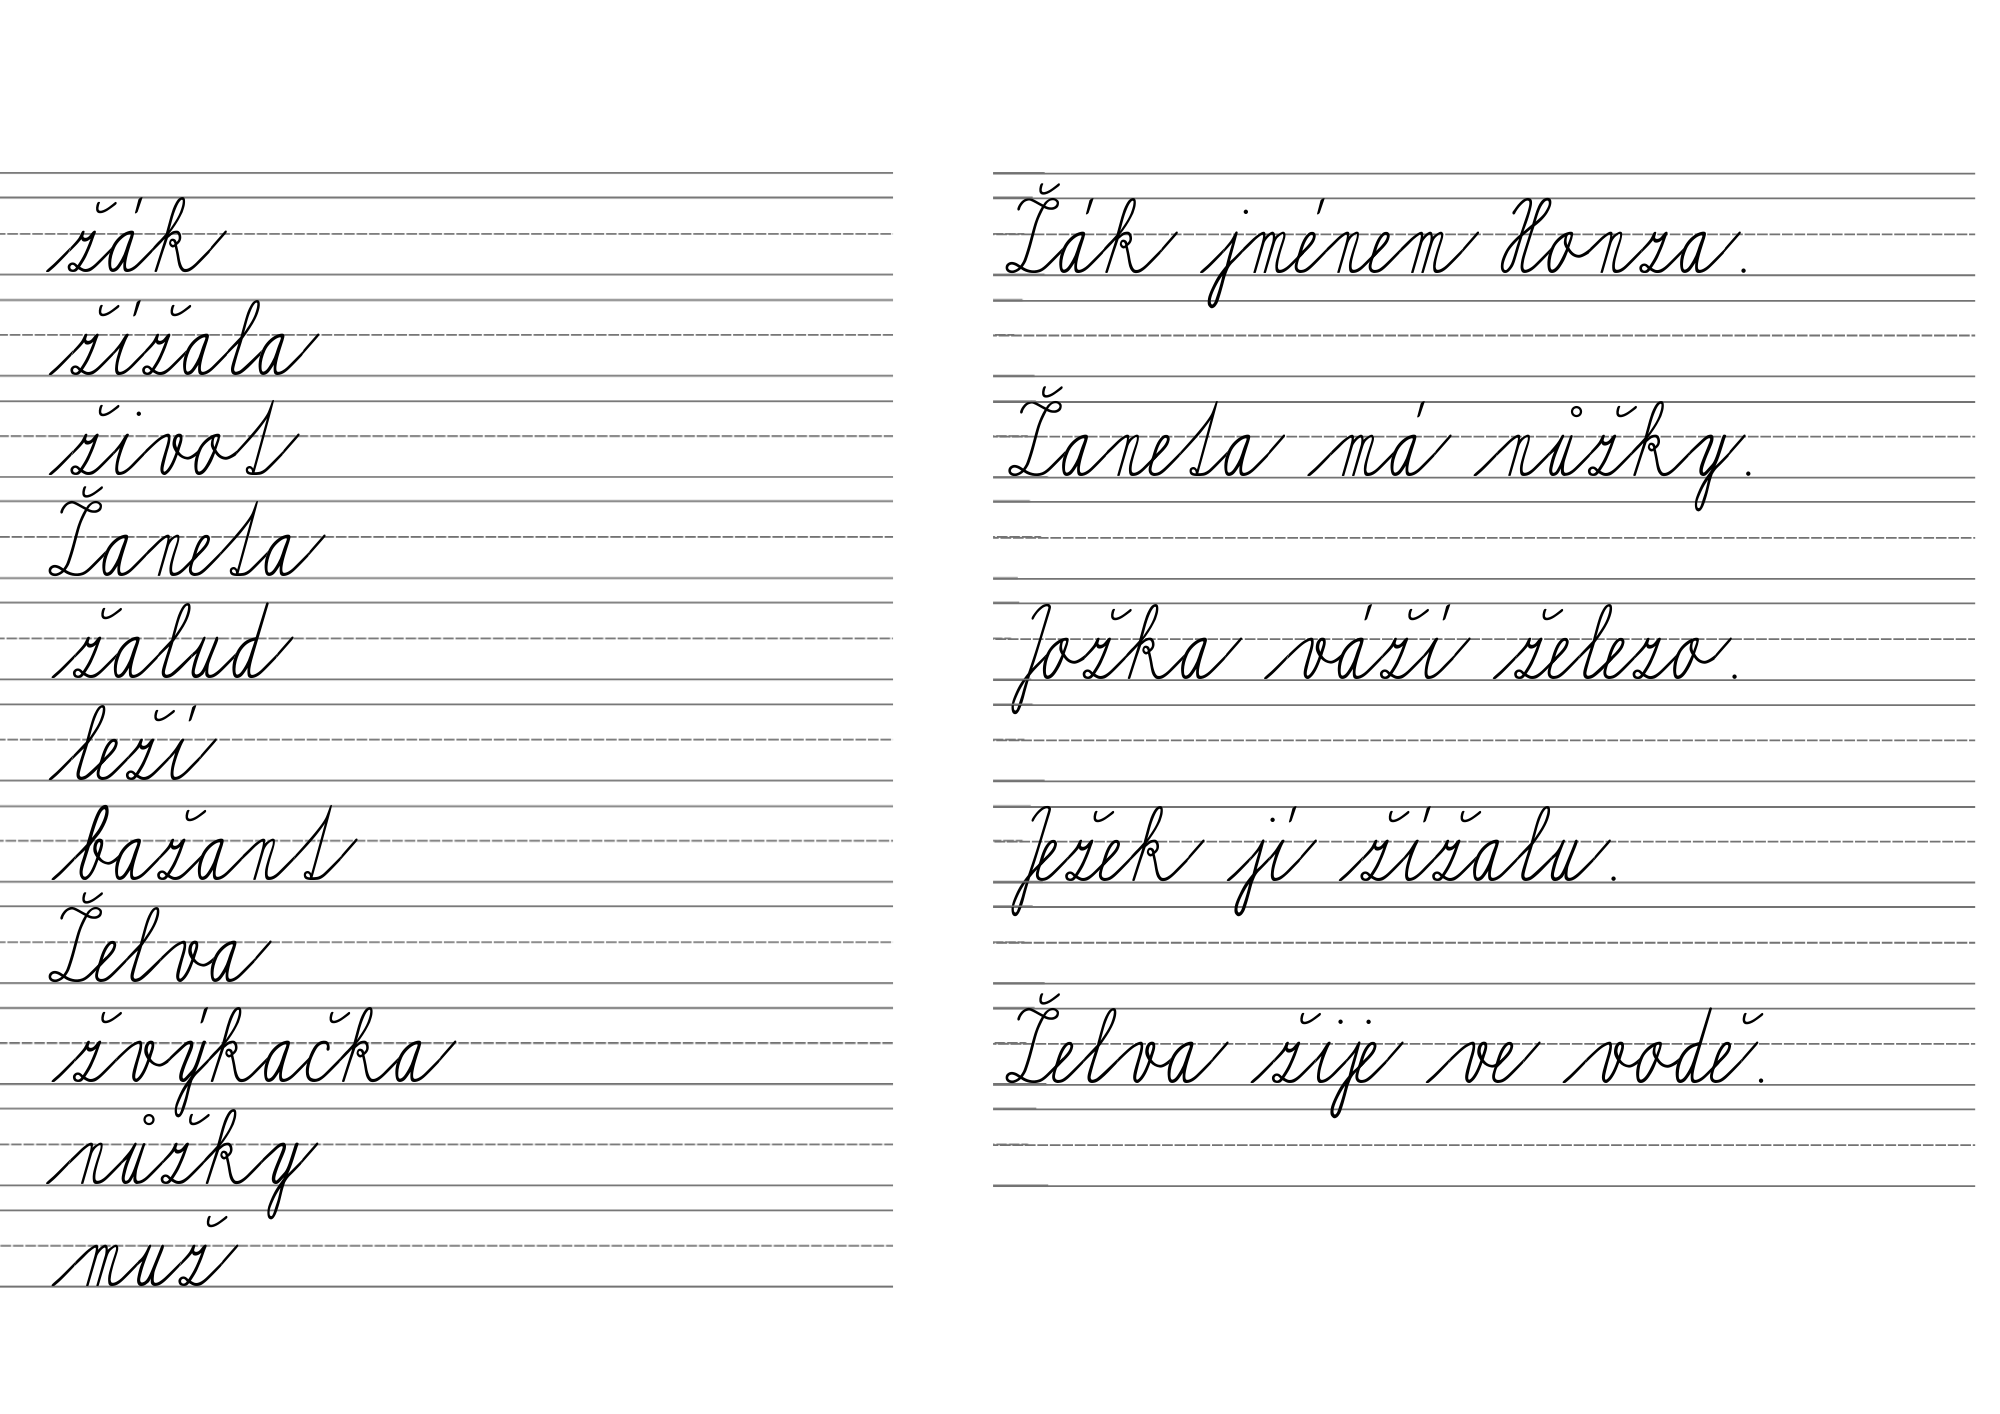 žák
žížala
život
Žaneta
žalud
leží
bažant
Želva
žvýkačka
nůžky
muž
Žák jménem Honza.
Žaneta má nůžky.
Jožka váží železo.
Ježek jí žížalu.
Želva žije ve vodě.